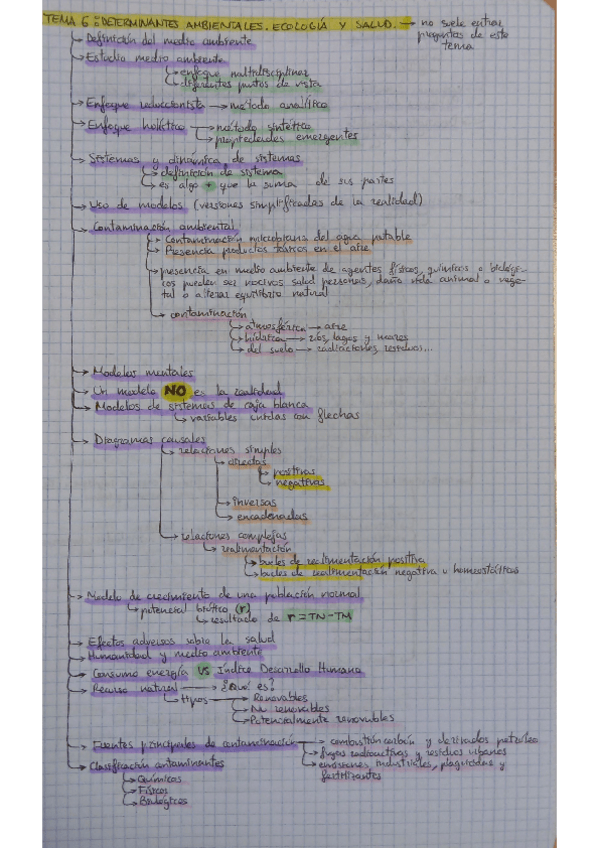 TEMA 6: DETERMINANTES AMBIENTALES. ECOLOGÍA Y SALUD. → no suele entrar
preguntas de este
tema
→ Definición del medio ambiente
→ Estudio medio ambiente
→ enfoque multidisciplinar
→ diferentes puntos de vista
→ Enfoque reduccionista → método analítico
→ Enfoque holístico → método sintético
→ propiedades emergentes
→ Sistemas y dinámica de sistemas
→ definición de sistema
→ es algo + que la suma de sus partes
→ Uso de modelos (versiones simplificadas de la realidad)
→ Contaminación ambiental
→ Contaminación microbiana del agua potable
→ Presencia productos tóxicos en el aire
→ presencia en medio ambiente de agentes físicos, químicos o biológi-
cos pueden ser nocivos salud personas, daña vida animal o vege-
tal o alteras equilibrio natural
→ contaminación
→ atmosférica → aire
→ hídrica → ríos, lagos y mares
→ del suelo → radiaciones, residuos...
→ Modelos mentales
→ Un modelo NO es la realidad
→ Modelos de sistemas de caja blanca
→ variables unidas con flechas
→ Diagramas causales
→ relaciones simples
→ directas
→ positivas
→ negativas
→ inversas
→ encadenadas
→ relaciones complejas
→ realimentación
→ bucles de realimentación positiva
→ bucles de realimentación negativa u homeostáticos
→ Modelo de crecimiento de una población normal
→ potencial biótico (r)
→ resultado de r = TN - TM
→ Efectos adversos sobre la salud
→ Humanidad y medio ambiente
→ Consumo energía VS Índice Desarrollo Humano
→ Recurso natural → ¿Qué es?
→ tipos → Renovables
→ No renovables
→ Potencialmente renovables
→ Fuentes principales de contaminación → combustión carbón y derivados petróleo
→ fugas radioactivas y residuos urbanos
→ emisiones industriales, plaguicidas y
fertilizantes
→ Clasificación contaminantes
→ Químicos
→ Físicos
→ Biológicos